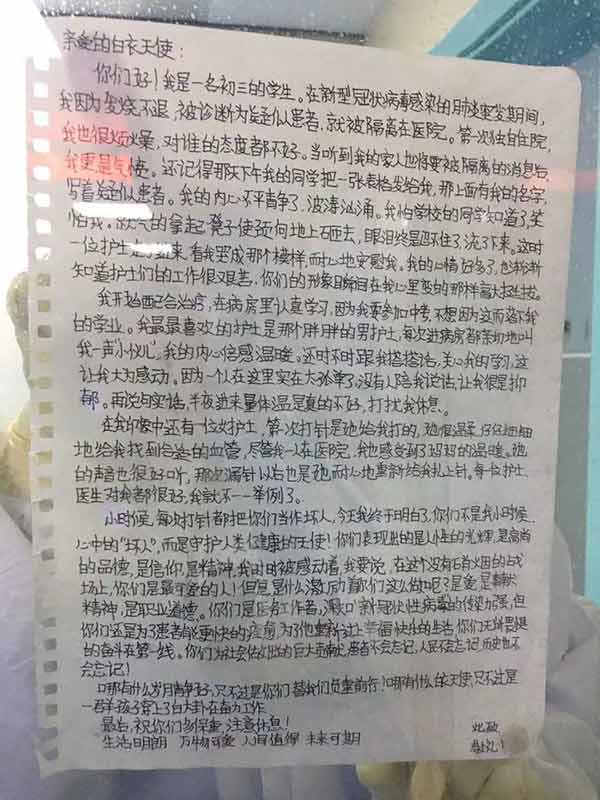 亲爱的白衣天使：
你们好！我是一名初三的学生。在新型冠状病毒感染的肺炎突发期间，
我因为发烧不退，被诊断为疑似患者，就被隔离在医院。第一次独自住院，
我也很烦燥，对谁的态度都不好。当听到我的家人也将要被隔离的消息后，
我更是气愤。还记得那天下午我的同学把一张表格发给我，那上面有我的名字，
写着疑似患者。我的内心不平静了，波涛汹涌。我怕学校的同学知道了，笑
怕我。气的拿起凳子使劲向地上砸去，眼泪终是忍不住了，流了下来。这时
一位护士走了进来，看我哭成那个模样，耐心地安慰我。我的心情好多了，也渐渐
知道护士们的工作很艰苦，你们的形象瞬间在我心里变的那样高大起来。
我开始配合治疗，在病房里认真学习，因为我要参加中考，不想因为这而落下我
的学业。我最最喜欢的护士是那个胖胖的男护士，每次进病房都亲切地叫
我一声“小伙儿”，我的内心倍感温暖。还时不时跟我搭搭话，关心我的学习，这
让我大为感动。因为一个人在这里实在太孤单了，没有人陪我说话，让我很是抑
郁。再说句实话，半夜进来量体温是真的不好，打扰我休息。
在我印象中还有一位女护士，第一次打针是她给我打的，她很温柔，仔仔细细
地给我找到合适的血管，尽管我一人在医院，我也感受到了妈妈的温暖。她
的声音也很好听，那次漏针以后也是她耐心地重新给我扎上针。每一位护士、
医生对我都很好，我就不一一举例了。
小时候，每次打针都把你们当作坏人，今天我终于明白了，你们不是我小时候
心中的“坏人”，而是守护人类健康的天使！你们表现出的是人性的光辉，是高尚
的品德，是信仰，是精神，我时时被感动着，我要说，在这个没有硝烟的战
场上，你们是最可爱的人！但是是什么激励着你们这么做呢？是爱，是奉献
精神，是职业道德。你们是医务工作者，深知新冠状性病毒的传染力强，但
你们还是为了患者能更快的痊愈，为了他重新过上幸福快乐的生活，你们无所畏惧
的奋斗在第一线。你们为社会做出的巨大贡献，患者不会忘记，人民不会忘记，历史也不
会忘记！
哪有什么岁月静好，只不过是你们替我们负重前行！哪有什么白衣天使，只不过是
一群孩子穿上了白大卦在奋力工作。
最后，祝你们多保重，注意休息！
生活明朗 万物可爱 人间值得 未来可期
此致
敬礼！